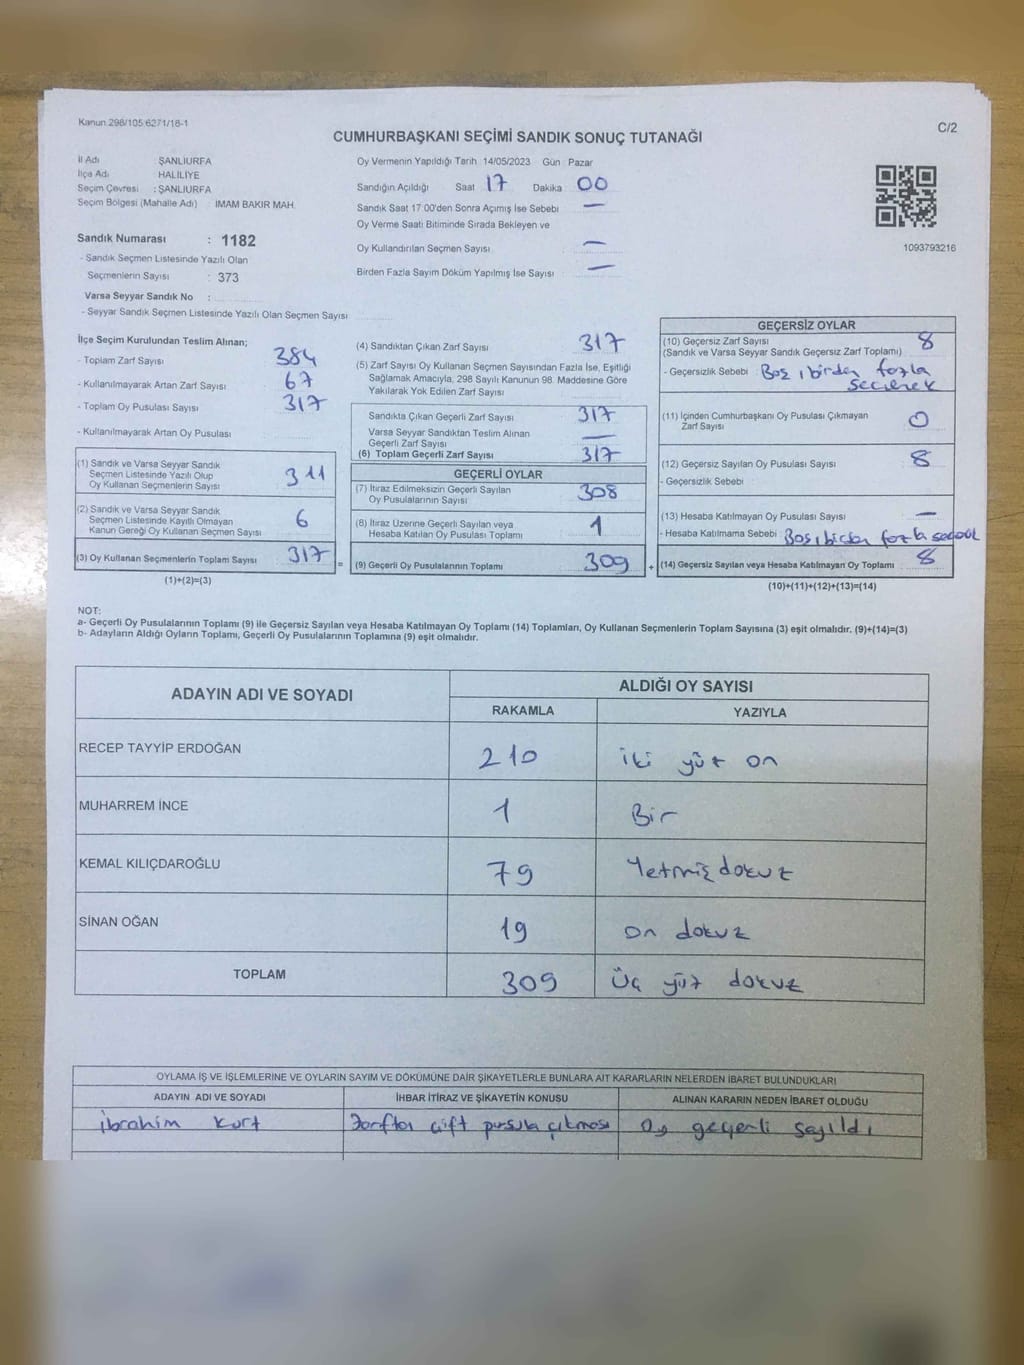 Kanun 298/105 6271/18-1
C/2
CUMHURBAŞKANI SEÇİMİ SANDIK SONUÇ TUTANAĞI
İl Adı : ŞANLIURFA
İlçe Adı : HALİLİYE
Seçim Çevresi : ŞANLIURFA
Seçim Bölgesi (Mahalle Adı) : IMAM BAKIR MAH.
Sandık Numarası : 1182
- Sandık Seçmen Listesinde Yazılı Olan
Seçmenlerin Sayısı : 373
Varsa Seyyar Sandık No :
- Seyyar Sandık Seçmen Listesinde Yazılı Olan Seçmen Sayısı
Oy Vermenin Yapıldığı Tarih 14/05/2023 Gün Pazar
Sandığın Açıldığı Saat 17 Dakika 00
Sandık Saat 17:00'den Sonra Açımış İse Sebebi —
Oy Verme Saati Bitiminde Sırada Bekleyen ve
Oy Kullandırılan Seçmen Sayısı —
Birden Fazla Sayım Döküm Yapılmış İse Sayısı —
1093793216
İlçe Seçim Kurulundan Teslim Alınan;
- Toplam Zarf Sayısı 384
- Kullanılmayarak Artan Zarf Sayısı 67
- Toplam Oy Pusulası Sayısı 317
- Kullanılmayarak Artan Oy Pusulası
(1) Sandık ve Varsa Seyyar Sandık
Seçmen Listesinde Yazılı Olup
Oy Kullanan Seçmenlerin Sayısı 311
(2) Sandık ve Varsa Seyyar Sandık
Seçmen Listesinde Kayıtlı Olmayan
Kanun Gereği Oy Kullanan Seçmen Sayısı 6
(3) Oy Kullanan Seçmenlerin Toplam Sayısı 317
(1)+(2)=(3)
(4) Sandıktan Çıkan Zarf Sayısı 317
(5) Zarf Sayısı Oy Kullanan Seçmen Sayısından Fazla İse, Eşitliği
Sağlamak Amacıyla, 298 Sayılı Kanunun 98. Maddesine Göre
Yakılarak Yok Edilen Zarf Sayısı
Sandıkta Çıkan Geçerli Zarf Sayısı 317
Varsa Seyyar Sandıktan Teslim Alınan
Geçerli Zarf Sayısı —
(6) Toplam Geçerli Zarf Sayısı 317
GEÇERLİ OYLAR
(7) İtiraz Edilmeksizin Geçerli Sayılan
Oy Pusulalarının Sayısı 308
(8) İtiraz Üzerine Geçerli Sayılan veya
Hesaba Katılan Oy Pusulası Toplamı 1
= (9) Geçerli Oy Pusulalarının Toplamı 309
GEÇERSİZ OYLAR
(10) Geçersiz Zarf Sayısı 8
(Sandık ve Varsa Seyyar Sandık Geçersiz Zarf Toplamı)
- Geçersizlik Sebebi Boş, birden fazla
(11) İçinden Cumhurbaşkanı Oy Pusulası Çıkmayan
Zarf Sayısı 0
(12) Geçersiz Sayılan Oy Pusulası Sayısı 8
- Geçersizlik Sebebi
(13) Hesaba Katılmayan Oy Pusulası Sayısı —
- Hesaba Katılmama Sebebi Boş, birden fazla
+ (14) Geçersiz Sayılan veya Hesaba Katılmayan Oy Toplamı 8
(10)+(11)+(12)+(13)=(14)
NOT:
a- Geçerli Oy Pusulalarının Toplamı (9) ile Geçersiz Sayılan veya Hesaba Katılmayan Oy Toplamı (14) Toplamları, Oy Kullanan Seçmenlerin Toplam Sayısına (3) eşit olmalıdır. (9)+(14)=(3)
b- Adayların Aldığı Oyların Toplamı, Geçerli Oy Pusulalarının Toplamına (9) eşit olmalıdır.
ADAYIN ADI VE SOYADI
ALDIĞI OY SAYISI
RAKAMLA YAZIYLA
RECEP TAYYİP ERDOĞAN 210 iki yüz on
MUHARREM İNCE 1 Bir
KEMAL KILIÇDAROĞLU 79 Yetmiş dokuz
SİNAN OĞAN 19 on dokuz
TOPLAM 309 Üç yüz dokuz
OYLAMA İŞ VE İŞLEMLERİNE VE OYLARIN SAYIM VE DÖKÜMÜNE DAİR ŞİKAYETLERLE BUNLARA AİT KARARLARIN NELERDEN İBARET BULUNDUKLARI
ADAYIN ADI VE SOYADI İHBAR İTİRAZ VE ŞİKAYETİN KONUSU ALINAN KARARIN NEDEN İBARET OLDUĞU
İbrahim Kurt çift pusula çıkması Oy geçerli sayıldı